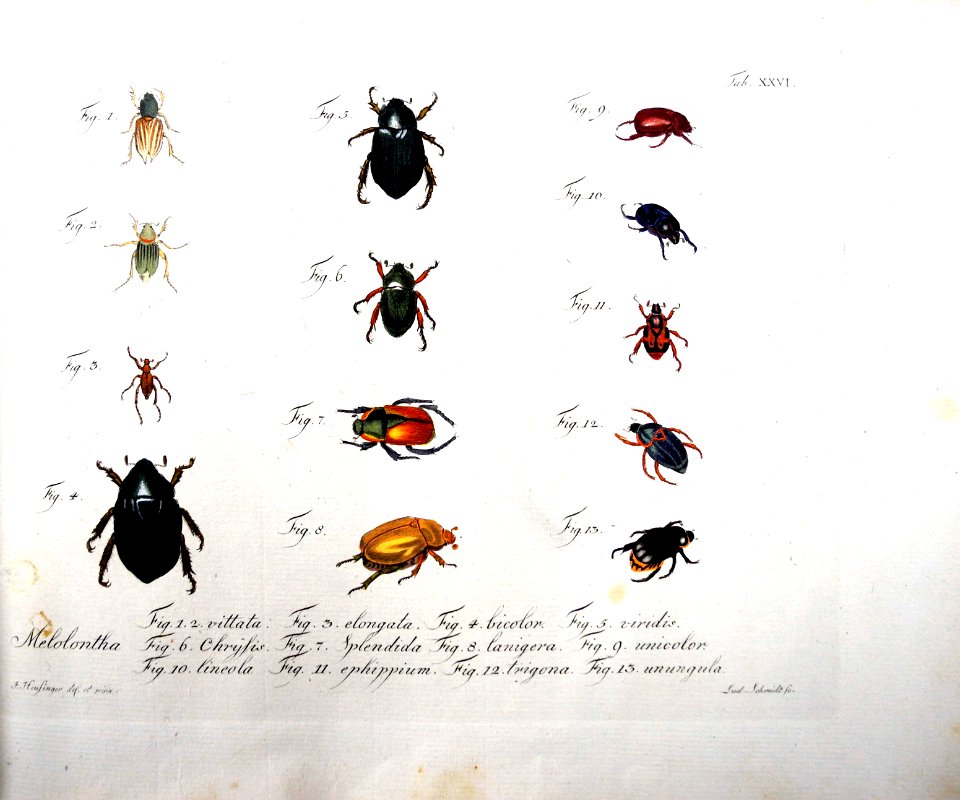 Tab. XXVI.
Fig. 1.
Fig. 2.
Fig. 3.
Fig. 4.
Fig. 5.
Fig. 6.
Fig. 7.
Fig. 8.
Fig. 9.
Fig. 10.
Fig. 11.
Fig. 12.
Fig. 13.
Melolontha
Fig. 1. 2. vittata. Fig. 3. elongata. Fig. 4. bicolor. Fig. 5. viridis.
Fig. 6. Chryſis. Fig. 7. Splendida Fig. 8. lanigera. Fig. 9. unicolor.
Fig. 10. lineola Fig. 11. ephippium. Fig. 12. trigona. Fig. 13. unungula.
del. et pinx.
Lud. Schmidt ſc.